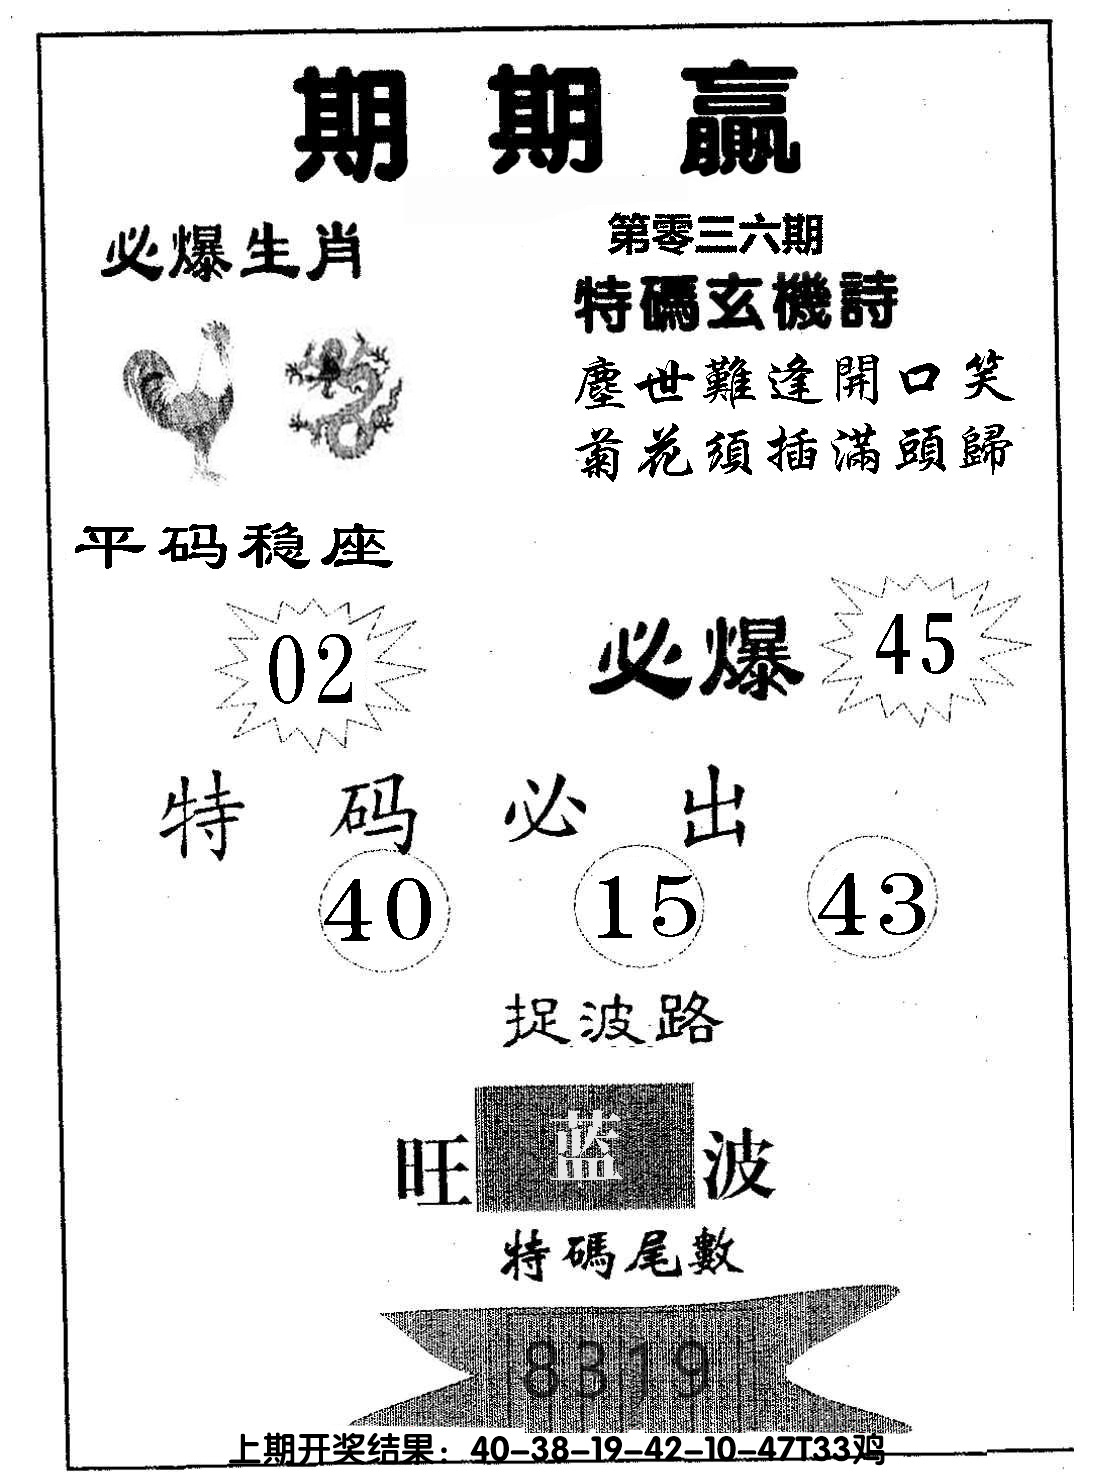 期期贏
必爆生肖
第零三六期
特碼玄機詩
塵世難逢開口笑
菊花須插滿頭歸
平码稳座
02
必爆
45
特码必出
40 15 43
捉波路
旺蓝波
特碼尾數
8319
上期开奖结果：40-38-19-42-10-47T33鸡